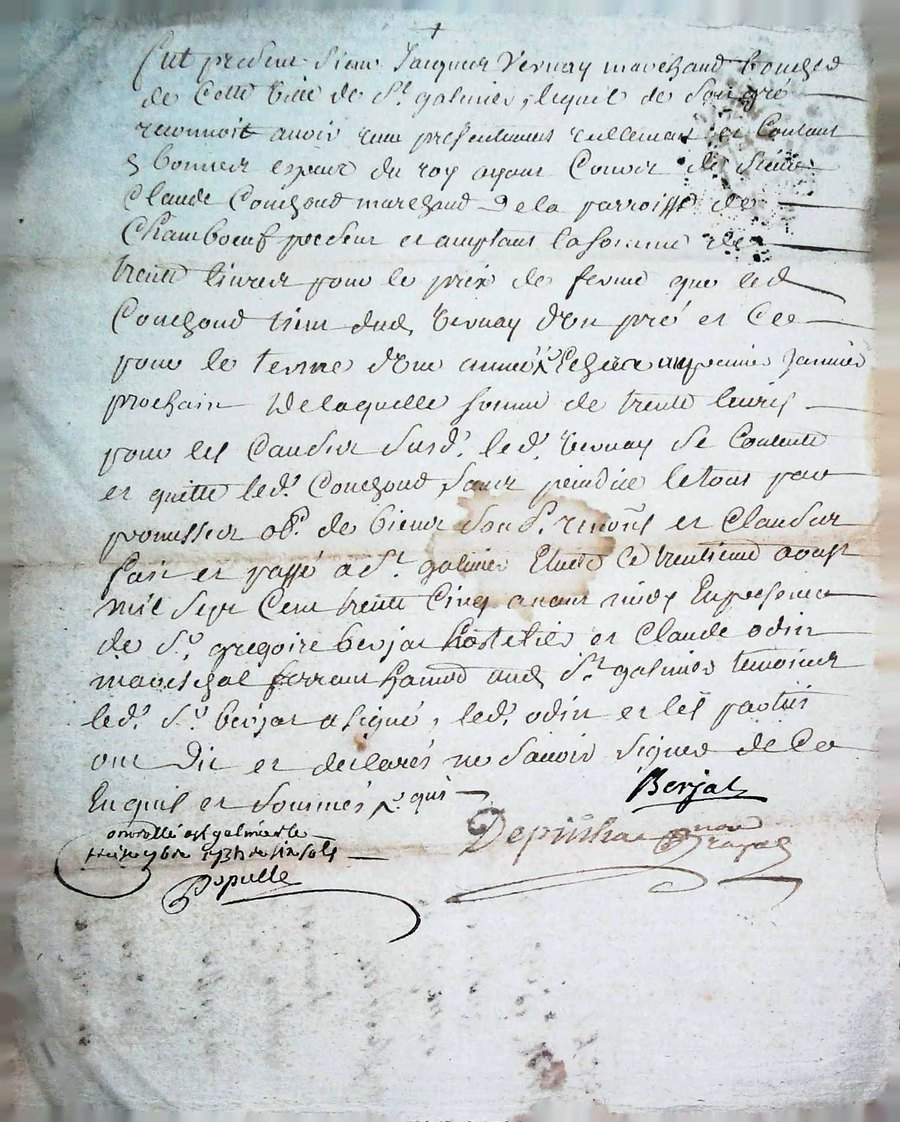 fut present sieur Jacques Vernay marchand boucher
de cette ville de St. galmier, lequel de son gré
reconnoit avoir reçu presentement reellement et contant
en bonnes espece du roy ayant cours de sieur
Claude Couchoud marchand de la parroisse de
Chambœuf present et acceptant la somme de
trente livres pour le prix de ferme que led
Couchoud tient dud Vernay d'un pré et ce
pour le terme d'une année premier Janvier
prochain de laquelle somme de trente livres
pour les causes susd. led. Vernay se contente
et quitte led. Couchoud sans le tout par
promesses ob. de biens soub. renons et clauses
fait et passé a St. galmier Etude le trentieme aoust
mil sept cent trente cinq avant midy En presence
de Sr. gregoire berjat hostelier et Claude odin
mareschal ferrant dud St. galmier temoins
led. Sr. berjat a signé, led. odin et les parties
ont dit et declarés ne savoir signer de ce
Enquis et sommés
Berjat
Depinhac
a st galmier le
six sols
Populle